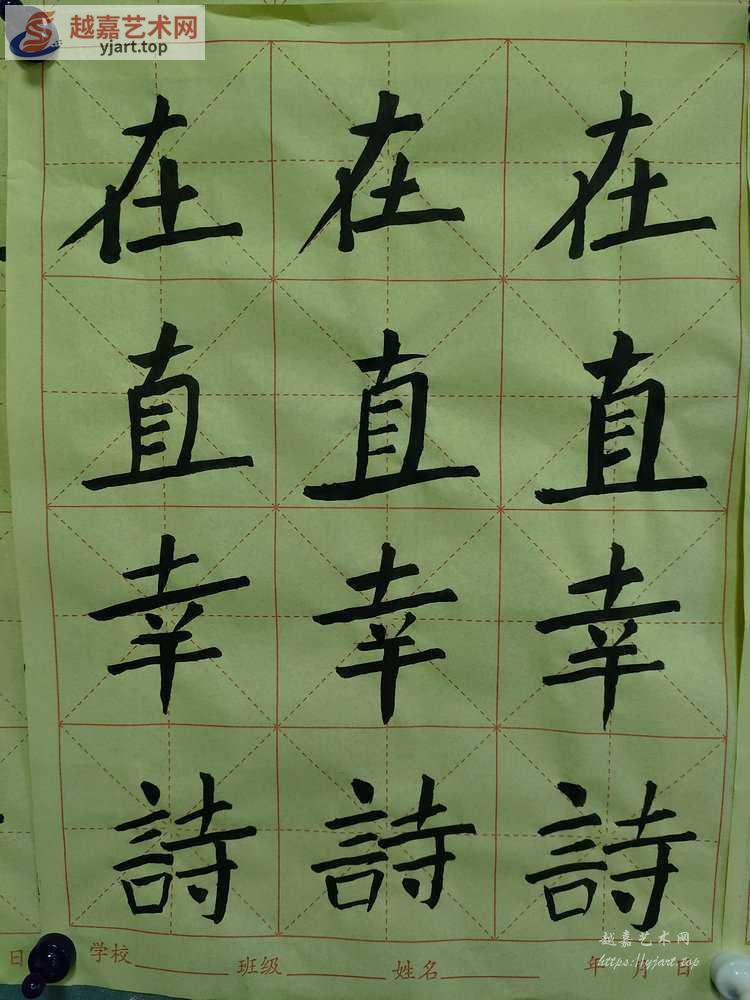 越嘉艺术网
yjart.top
在在在
直直直
幸幸幸
詩詩詩
日 学校 班级 姓名 年 月 日
越嘉艺术网
https://yjart.top